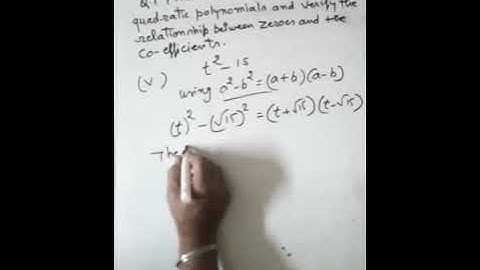 quad-ratic polynomials and verify the
relationship between zeroes and the
co-efficients.
(v) t² - 15
using a² - b² = (a+b)(a-b)
(t)² - (√15)² = (t+√15)(t-√15)
The